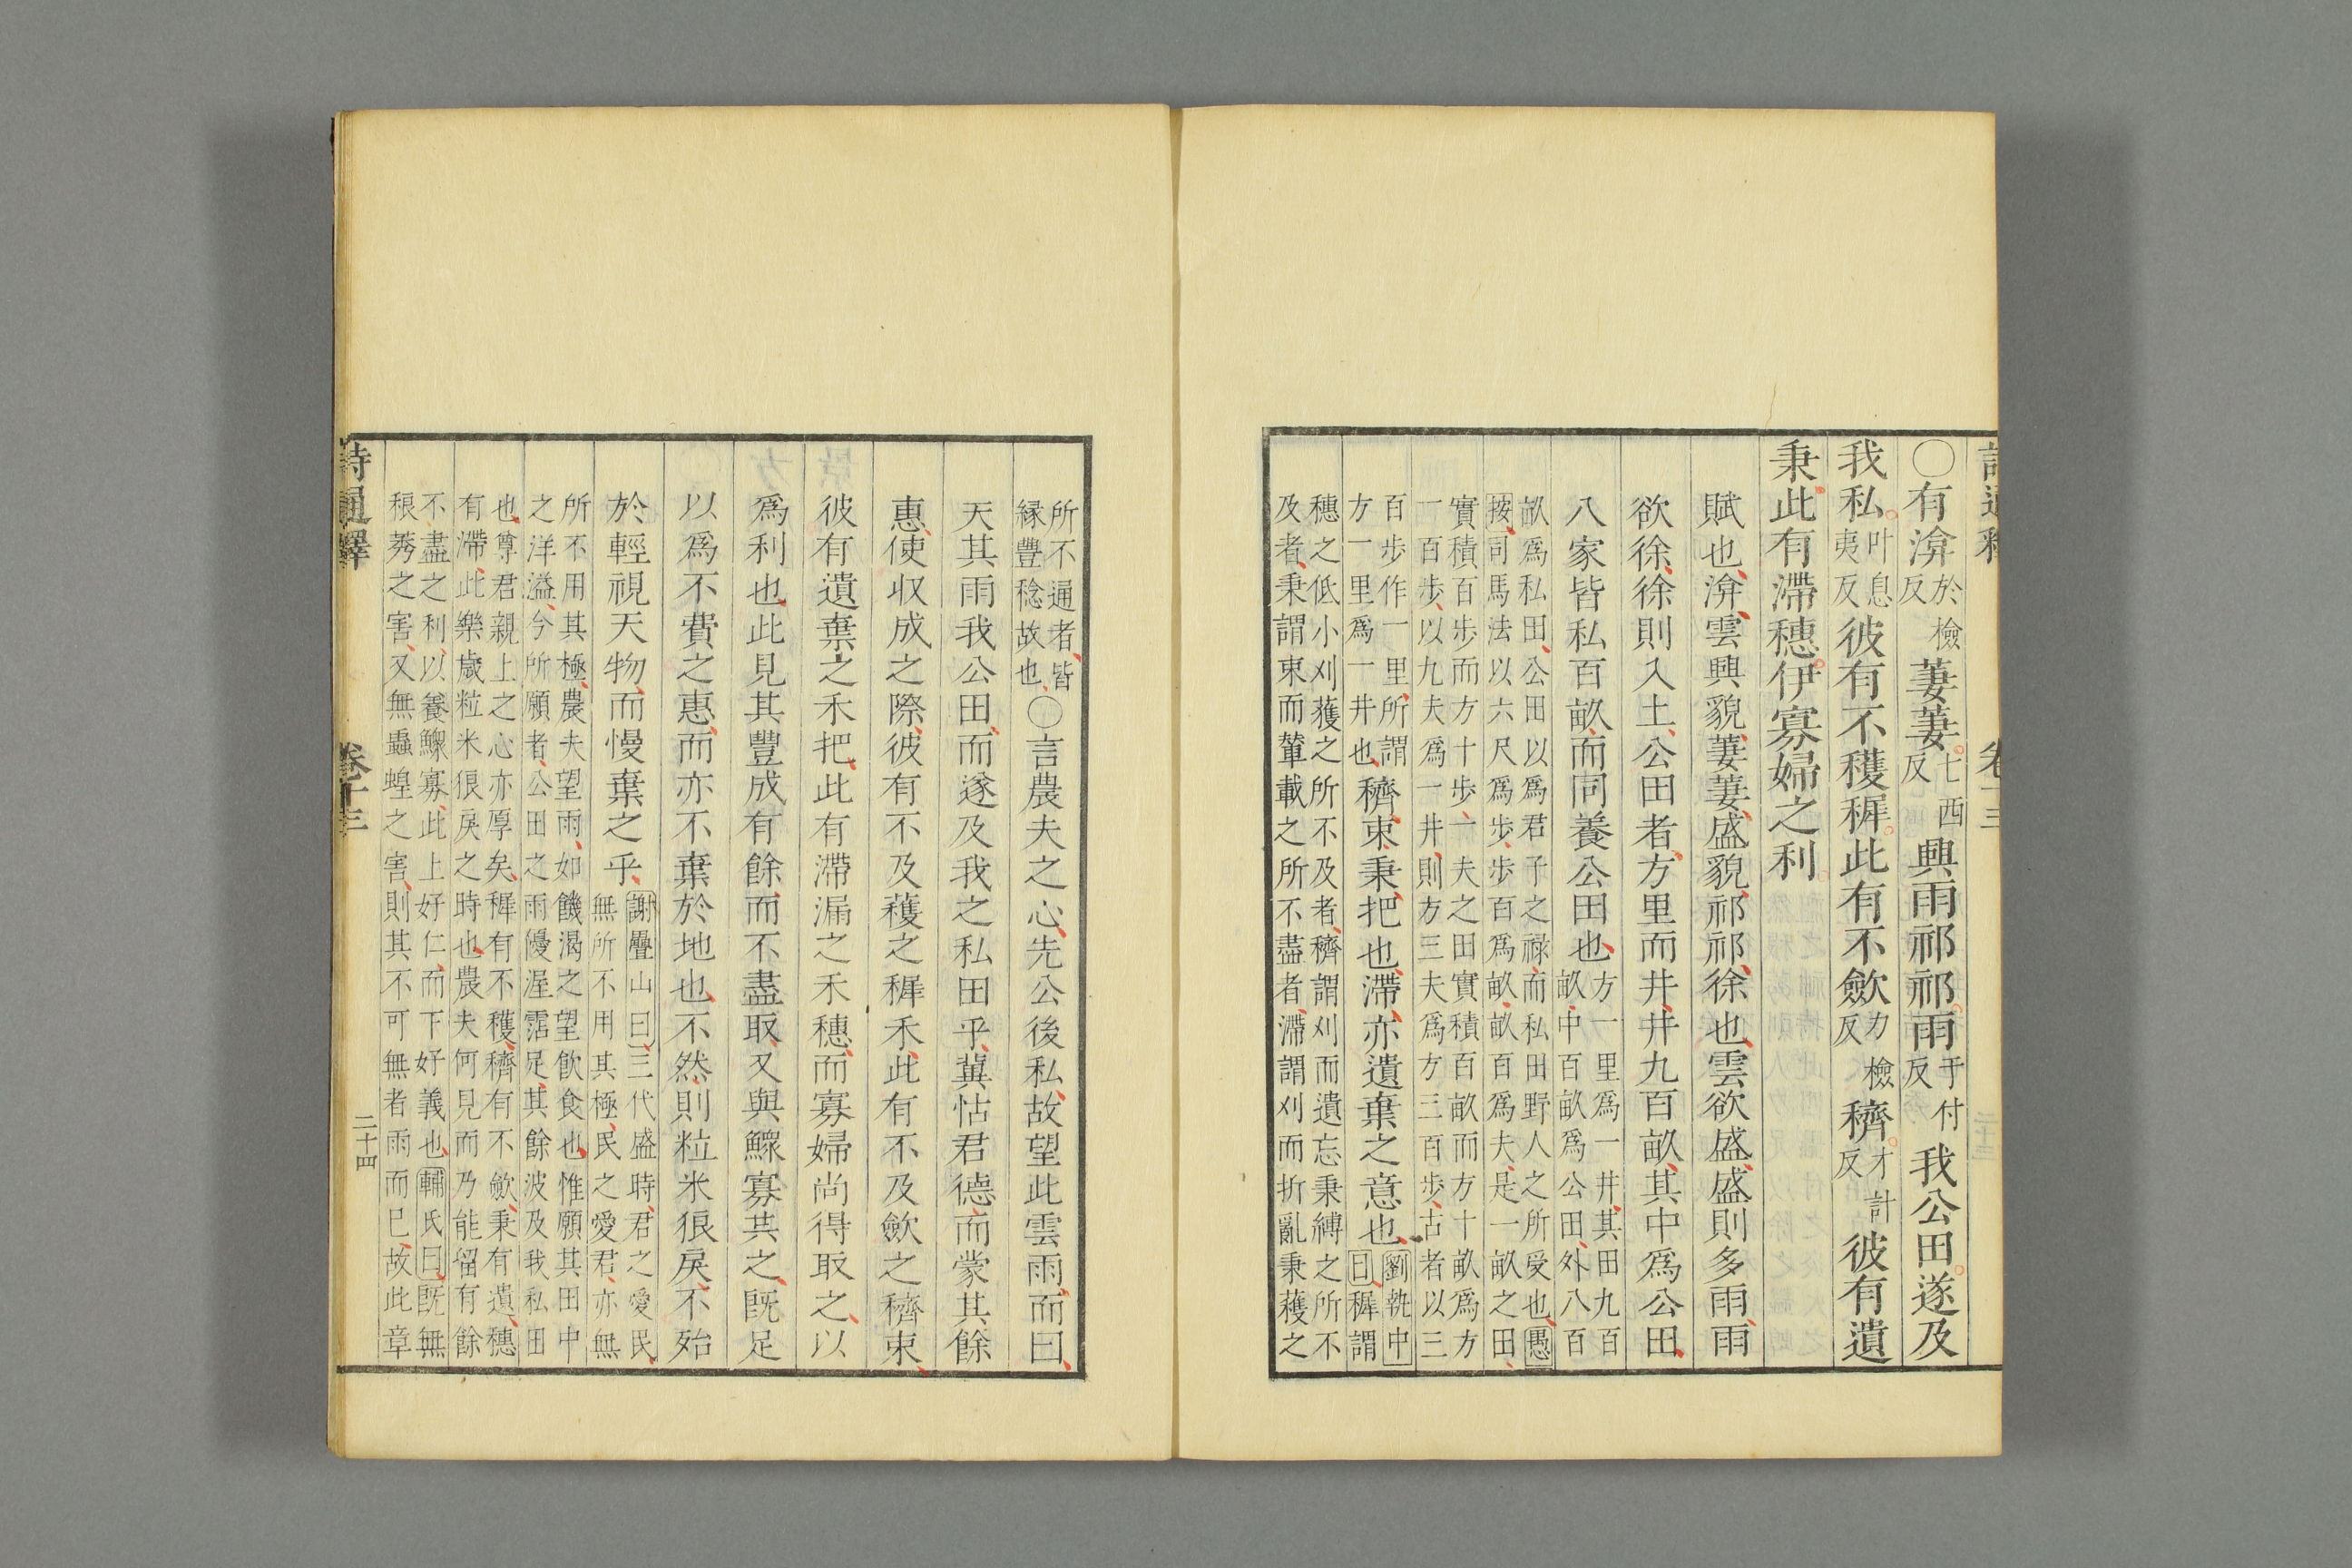 詩通釋 卷十三
〇有渰於檢反萋萋七西反興雨祁祁雨于付反我公田遂及
我私叶息夷反彼有不穫穉此有不歛力檢反穧才計反彼有遺
秉此有滯穗伊寡婦之利
賦也渰雲興貌萋萋盛貌祁祁徐也雲欲盛盛則多雨雨
欲徐徐則入土公田者方里而井井九百畝其中爲公田
八家皆私百畝而同養公田也方一里爲一井其田九百畝中百畝爲公田外八百
畝爲私田公田以爲君子之祿而私田野人之所受也愚
按司馬法以六尺爲步步百爲畝畝百爲夫是一畝之田
實積百步而方十步一夫之田實積百畝而方十畝爲方
一百步以九夫爲一井則方三夫爲方三百步古者以三
百步作一里所謂方一里爲一井也穧束秉把也滯亦遺棄之意也劉執中曰穉謂
穗之低小刈穫之所不及者穧謂刈而遺忘秉縛之所不
及者秉謂束而輦載之所不盡者滯謂刈而折亂秉穫之
所不通者皆縁豐稔故也〇言農夫之心先公後私故望此雲雨而曰
天其雨我公田而遂及我之私田乎冀怙君德而蒙其餘
惠使収成之際彼有不及穫之穉禾此有不及歛之穧束
彼有遺棄之禾把此有滯漏之禾穗而寡婦尚得取之以
爲利也此見其豐成有餘而不盡取又與鰥寡共之旣足
以爲不費之惠而亦不棄於地也不然則粒米狼戾不殆
於輕視天物而慢棄之乎謝疊山曰三代盛時君之愛民無所不用其極民之愛君亦無
所不用其極農夫望雨如饑渴之望飲食也惟願其田中
之洋溢今所願者公田之雨優渥霑足其餘波及我私田
也尊君親上之心亦厚矣穉有不穫穧有不歛秉有遺穗
有滯此樂歲粒米狼戾之時也農夫何見而乃能留有餘
不盡之利以養鰥寡此上好仁而下好義也輔氏曰旣無
稂莠之害又無蟲蝗之害則其不可無者雨而已故此章
詩通釋 卷十三 二十四